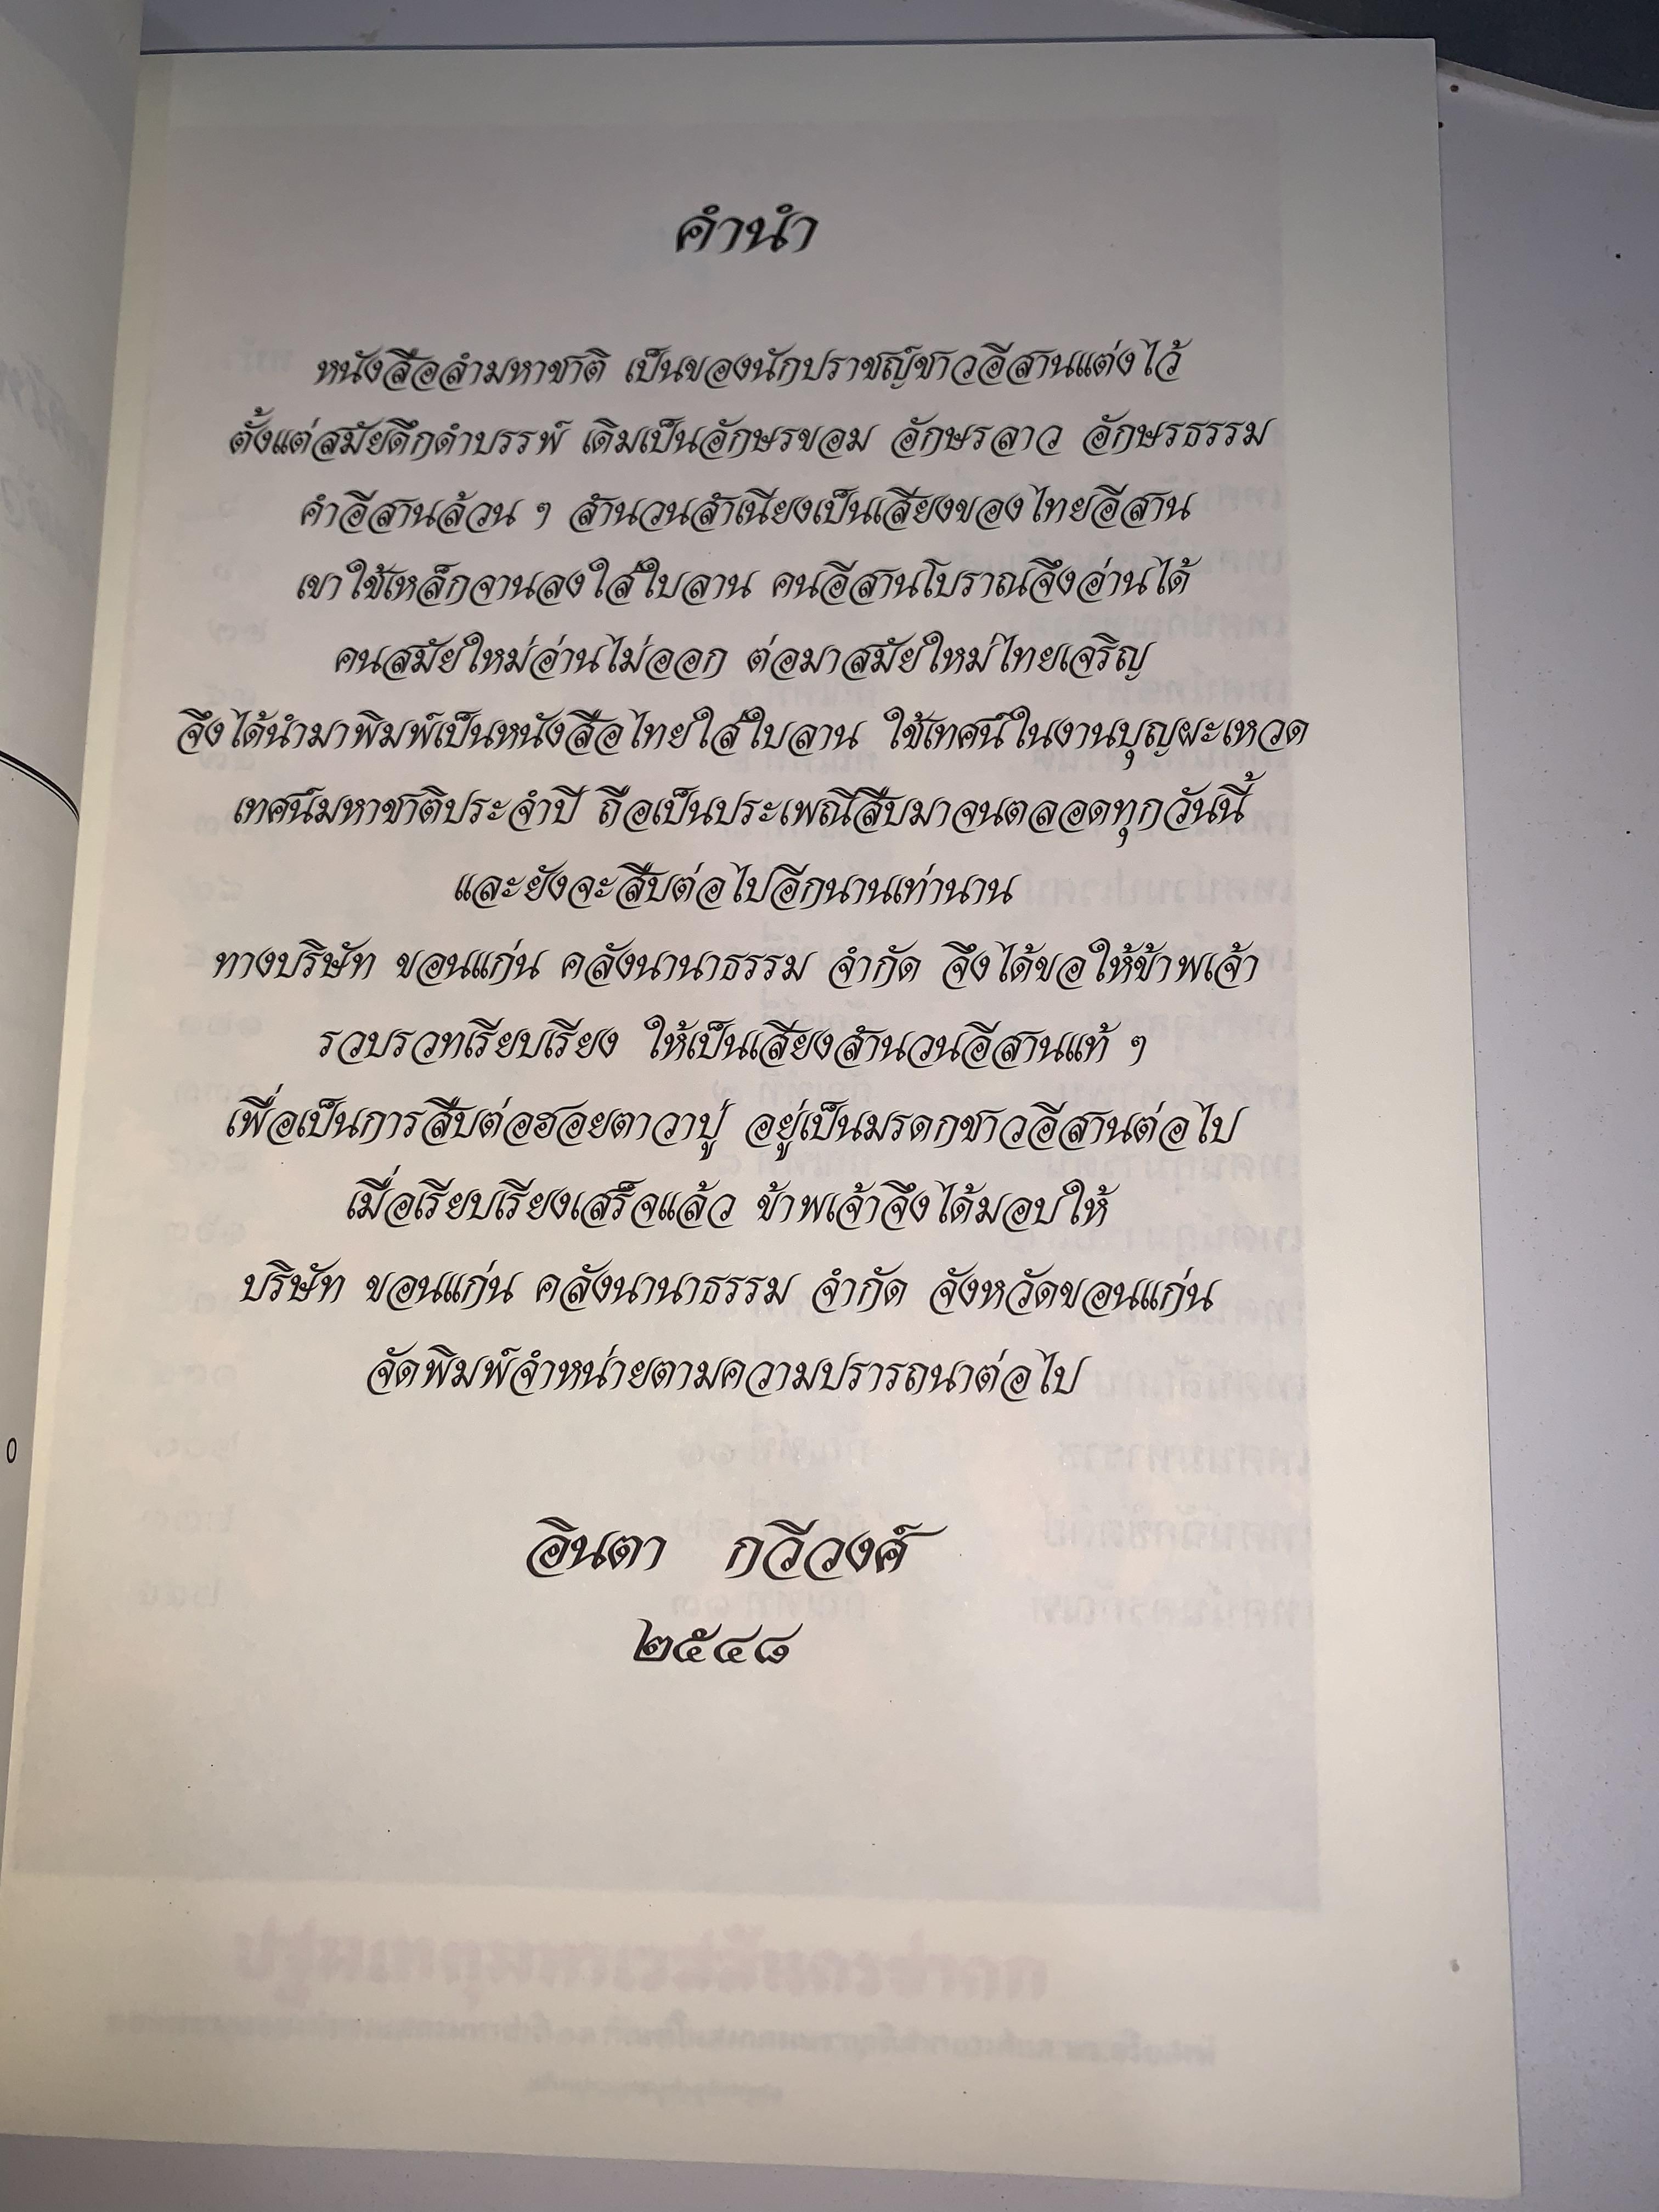 คำนำ
หนังสือลำมหาชาติ เป็นของนักปราชญ์ชาวอีสานแต่งไว้
ตั้งแต่สมัยดึกดำบรรพ์ เดิมเป็นอักษรขอม อักษรลาว อักษรธรรม
คำอีสานล้วน ๆ สำนวนสำเนียงเป็นเสียงของไทยอีสาน
เขาใช้เหล็กจานลงใส่ใบลาน คนอีสานโบราณจึงอ่านได้
คนสมัยใหม่อ่านไม่ออก ต่อมาสมัยใหม่ไทยเจริญ
จึงได้นำมาพิมพ์เป็นหนังสือไทยใส่ใบลาน ใช้เทศน์ในงานบุญผะเหวด
เทศน์มหาชาติประจำปี ถือเป็นประเพณีสืบมาจนตลอดทุกวันนี้
และยังจะสืบต่อไปอีกนานเท่านาน
ทางบริษัท ขอนแก่น คลังนานาธรรม จำกัด จึงได้ขอให้ข้าพเจ้า
รวบรวทเรียบเรียง ให้เป็นเสียงสำนวนอีสานแท้ ๆ
เพื่อเป็นการสืบต่อฮอยตาวาปู่ อยู่เป็นมรดกชาวอีสานต่อไป
เมื่อเรียบเรียงเสร็จแล้ว ข้าพเจ้าจึงได้มอบให้
บริษัท ขอนแก่น คลังนานาธรรม จำกัด จังหวัดขอนแก่น
จัดพิมพ์จำหน่ายตามความปรารถนาต่อไป
อินตา กวีวงศ์
๒๕๔๘